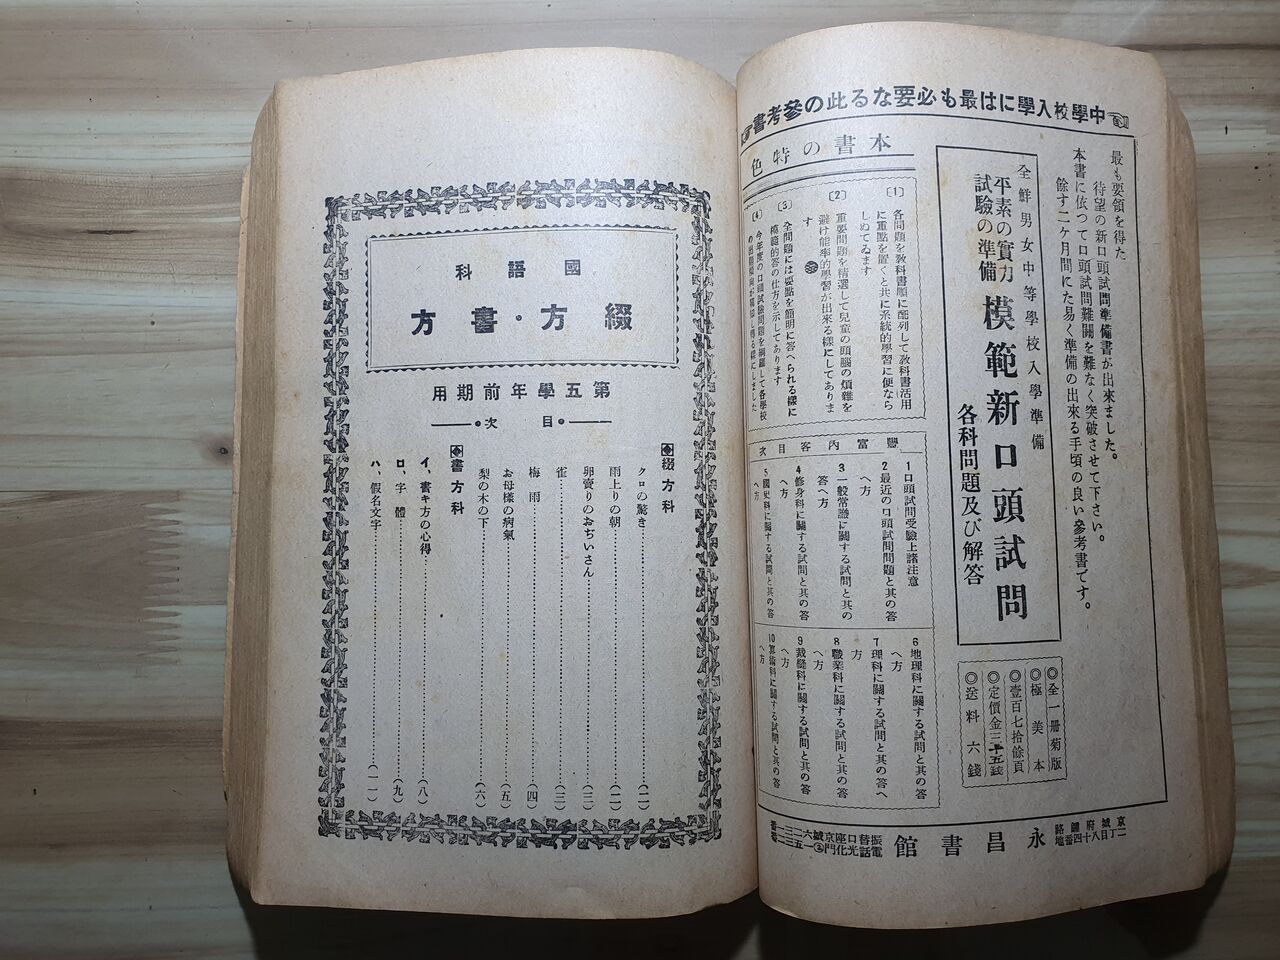 中學校入學には最も必要なる此の參考書
最も要領を得た
待望の新口頭試問準備書が出來ました。
本書に依つて口頭試問難關を難なく突破させて下さい。
餘す二ケ月間にた易く準備の出來る手頃の良い參考書です。
全鮮男女中等學校入學準備
平素の實力
試驗の準備
模範新口頭試問
各科問題及び解答
◎全一册菊版
◎極美本
◎壹百七拾餘頁
◎定價金三十五錢
◎送料六錢
本書の特色
〔1〕各問題を敎科書順に配列して敎科書活用
に重點を置くと共に系統的學習に便なら
しめてゐます
〔2〕重要問題を精選して兒童の頭腦の煩雜を
避け能率的學習が出來る樣にしてありま
す
〔3〕全問題には要點を簡明に答へられる樣に
模範的答の仕方を示してあります
〔4〕今年度の口頭試驗問題を網羅して各學校
豐富內容目次
1 口頭試問受驗上諸注意
2 最近の口頭試問問題と其の答
へ方
3 一般常識に關する試問と其の
答へ方
4 修身科に關する試問と其の答
へ方
5 國史科に關する試問と其の答
へ方
6 地理科に關する試問と其の答
へ方
7 理科に關する試問と其の答へ
方
8 職業科に關する試問と其の答
へ方
9 裁縫科に關する試問と其の答
へ方
10 算術科に關する試問と其の答
へ方
京城府鍾路二丁目八十四番地
永昌書館
國語科
綴方・書方
第五學年前期用
目次
綴方科
クロの驚き(一)
雨上りの朝(二)
卵賣りのおぢいさん(三)
雀(三)
梅雨(四)
お母樣の病氣(五)
梨の木の下(六)
書方科
イ、書キ方の心得(八)
ロ、字體(九)
ハ、假名文字(一一)